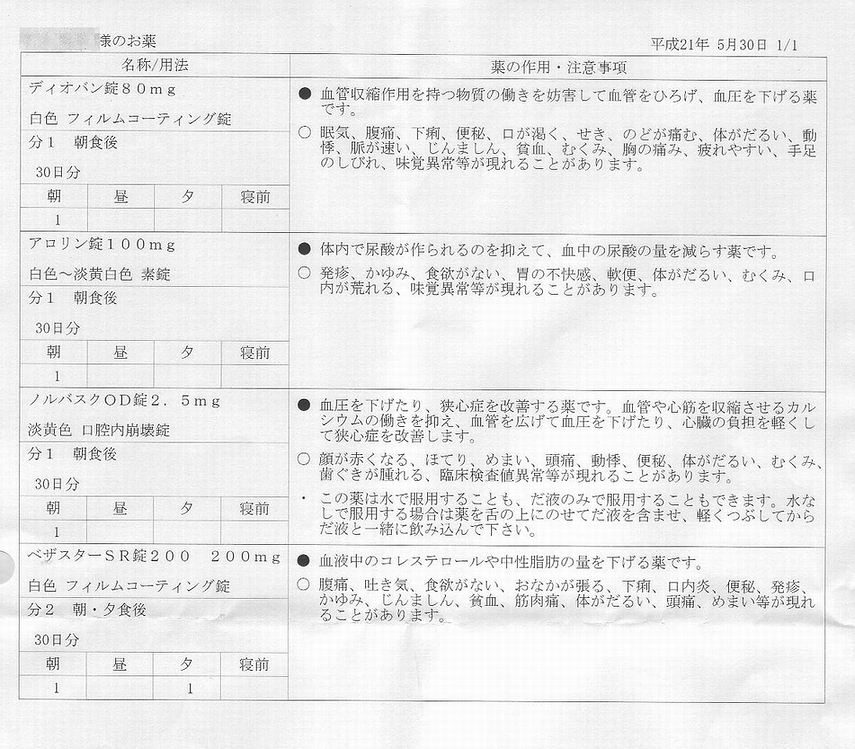 様のお薬
平成21年 5月30日 1/1
名称/用法
薬の作用・注意事項
ディオバン錠80mg
白色 フィルムコーティング錠
分1 朝食後
30日分
朝 昼 夕 寝前
1
● 血管収縮作用を持つ物質の働きを妨害して血管をひろげ、血圧を下げる薬
です。
○ 眠気、腹痛、下痢、便秘、口が渇く、せき、のどが痛む、体がだるい、動
悸、脈が速い、じんましん、貧血、むくみ、胸の痛み、疲れやすい、手足
のしびれ、味覚異常等が現れることがあります。
アロリン錠100mg
白色～淡黄白色 素錠
分1 朝食後
30日分
朝 昼 夕 寝前
1
● 体内で尿酸が作られるのを抑えて、血中の尿酸の量を減らす薬です。
○ 発疹、かゆみ、食欲がない、胃の不快感、軟便、体がだるい、むくみ、口
内が荒れる、味覚異常等が現れることがあります。
ノルバスクOD錠2.5mg
淡黄色 口腔内崩壊錠
分1 朝食後
30日分
朝 昼 夕 寝前
1
● 血圧を下げたり、狭心症を改善する薬です。血管や心筋を収縮させるカル
シウムの働きを抑え、血管を広げて血圧を下げたり、心臓の負担を軽くし
て狭心症を改善します。
○ 顔が赤くなる、ほてり、めまい、頭痛、動悸、便秘、体がだるい、むくみ、
歯ぐきが腫れる、臨床検査値異常等が現れることがあります。
・ この薬は水で服用することも、だ液のみで服用することもできます。水な
しで服用する場合は薬を舌の上にのせてだ液を含ませ、軽くつぶしてから
だ液と一緒に飲み込んで下さい。
ベザスターSR錠200 200mg
白色 フィルムコーティング錠
分2 朝・夕食後
30日分
朝 昼 夕 寝前
1 1
● 血液中のコレステロールや中性脂肪の量を下げる薬です。
○ 腹痛、吐き気、食欲がない、おなかが張る、下痢、口内炎、便秘、発疹、
かゆみ、じんましん、貧血、筋肉痛、体がだるい、頭痛、めまい等が現れ
ることがあります。